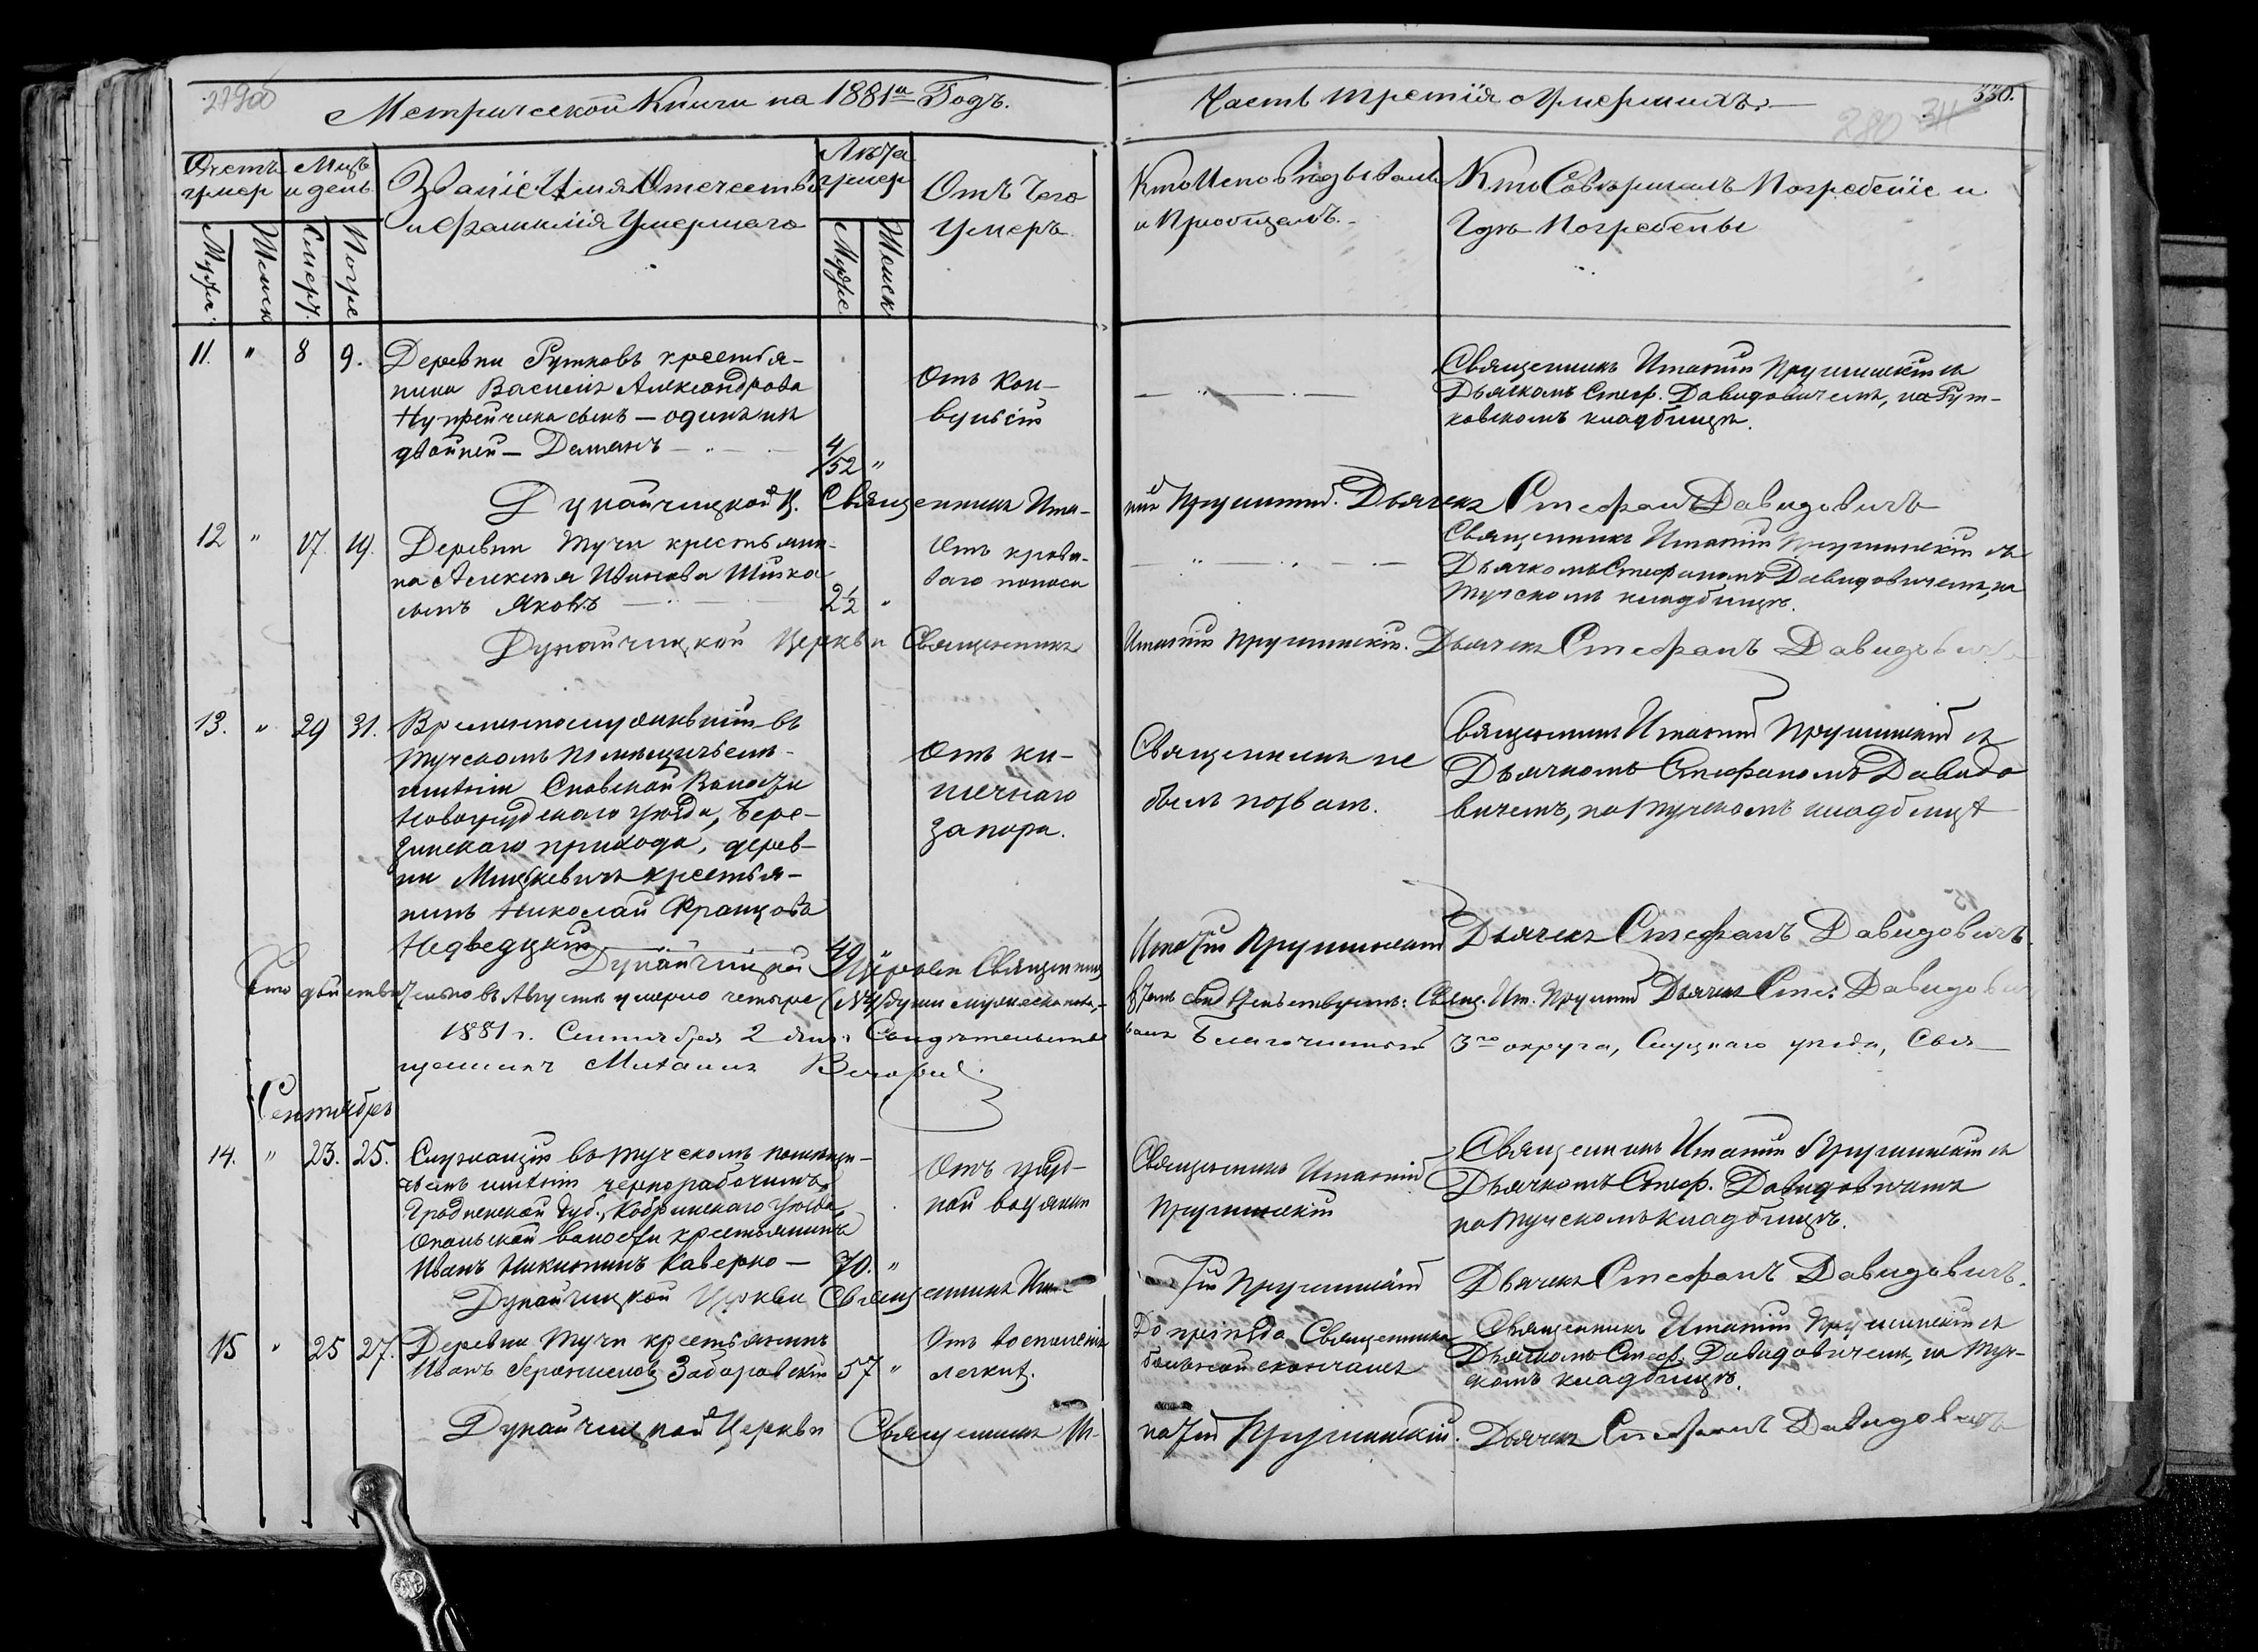 Метрической Книги на 1881й Годъ.
Часть третія о Умершихъ.
330.
280
Счетъ умер
Мцъ и день
Званіе Имя Отчество
и Фамилія Умершаго
Лѣта умер
Отъ Чего
Умеръ
Кто Исповѣдывалъ
и Пріобщалъ.
Кто Совершалъ Погребеніе и
Гдѣ Погребены
Мужск.
Женск
Смерт.
Погре
Мужс
Женск
11. " 8 9.
Деревни Рутковъ крестья-
нина Василія Александрова
Нупрейчика сынъ — одинъ изъ
двойней — Даміанъ
4/52 "
Отъ Кон-
вульсій
Священникъ Игнатій Прушинскій съ
Дьячкомъ Стеф. Давидовичемъ, на Рут-
ковскомъ кладбищѣ.
Дунайчицкой Ц. Священникъ Игна-
тій Прушинскій. Дьячекъ Стефанъ Давидовичъ
12 " 17. 19.
Деревни Тучи крестьяни-
на Алексѣя Иванова Шишко
сынъ Яковъ
2½ "
Отъ крова-
ваго поноса
Священникъ Игнатій Прушинскій съ
Дьячкомъ Стефаномъ Давидовичемъ, на
Тучскомъ кладбищѣ.
Дунайчицкой Церкви Священникъ
Игнатій Прушинскій. Дьячекъ Стефанъ Давидовичъ
13. " 29 31.
Временнослужившій въ
Тучскомъ помѣщичьемъ
имѣніи Сновской Волости
Новогрудскаго уѣзда, Бере-
зинскаго прихода, дерев-
ни Мицкевичи крестья-
нинъ Николай Францовъ
Недведцкій
49 "
Отъ ки-
шечнаго
запора.
Священникъ не
былъ позванъ.
Священникъ Игнатій Прушинскій съ
Дьячкомъ Стефаномъ Давидо
вичемъ, на Тучскомъ кладбищѣ
Дунайчицкой Церкви Священникъ
Игнатій Прушинскій Дьячекъ Стефанъ Давидовичъ.
Что дѣйствительно въ Августѣ умерло четыре (№4) души мужеска пола,
въ томъ свидѣтельствуетъ: Свящ. Иг. Прушинскій Дьячекъ Сте. Давидович
1881 г. Сентября 2 дня. Свидѣтельство
валъ Благочинный 3го округа, Слуцкаго уѣзда, Свя-
щенникъ Михаилъ
Сентябрь
14. " 23. 25.
Служащій въ Тучскомъ помѣщи-
чьемъ имѣніи чернорабочимъ,
Гродненской Губ., Кобринскаго уѣзда,
Опольской волости крестьянинъ
Иванъ Никитинъ Каверко —
70. "
Отъ груд-
ной водянки
Священникъ Игнатій
Прушинскій
Священникъ Игнатій Прушинскій съ
Дьячкомъ Стеф. Давидовичемъ
на Тучскомъ кладбищѣ.
Дунайчицкой Церкви Священникъ Игна-
тій Прушинскій Дьячекъ Стефанъ Давидовичъ.
15 " 25 27.
Деревни Тучи крестьянинъ
Иванъ Заборовскій
57 "
Отъ воспаленія
легкихъ.
До пріѣзда Священника
больной скончался
Священникъ Игнатій Прушинскій съ
Дьячкомъ Стеф. Давидовичемъ, на Туч-
скомъ кладбищѣ.
Дунайчицкой Церкви Священникъ Иг-
натій Прушинскій. Дьячекъ Стефанъ Давидовичъ